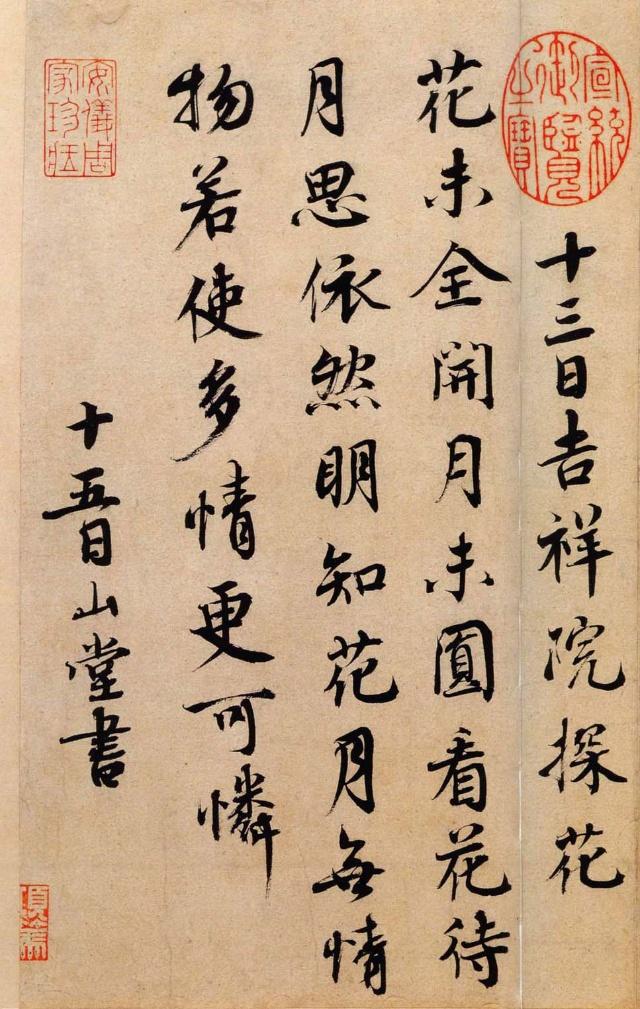 宣統
御覽
之寶
十三日吉祥院探花
花未全開月未圓看花待
月思依然明知花月無情
物若使多情更可憐
十五日山堂書
安儀周
家珍藏